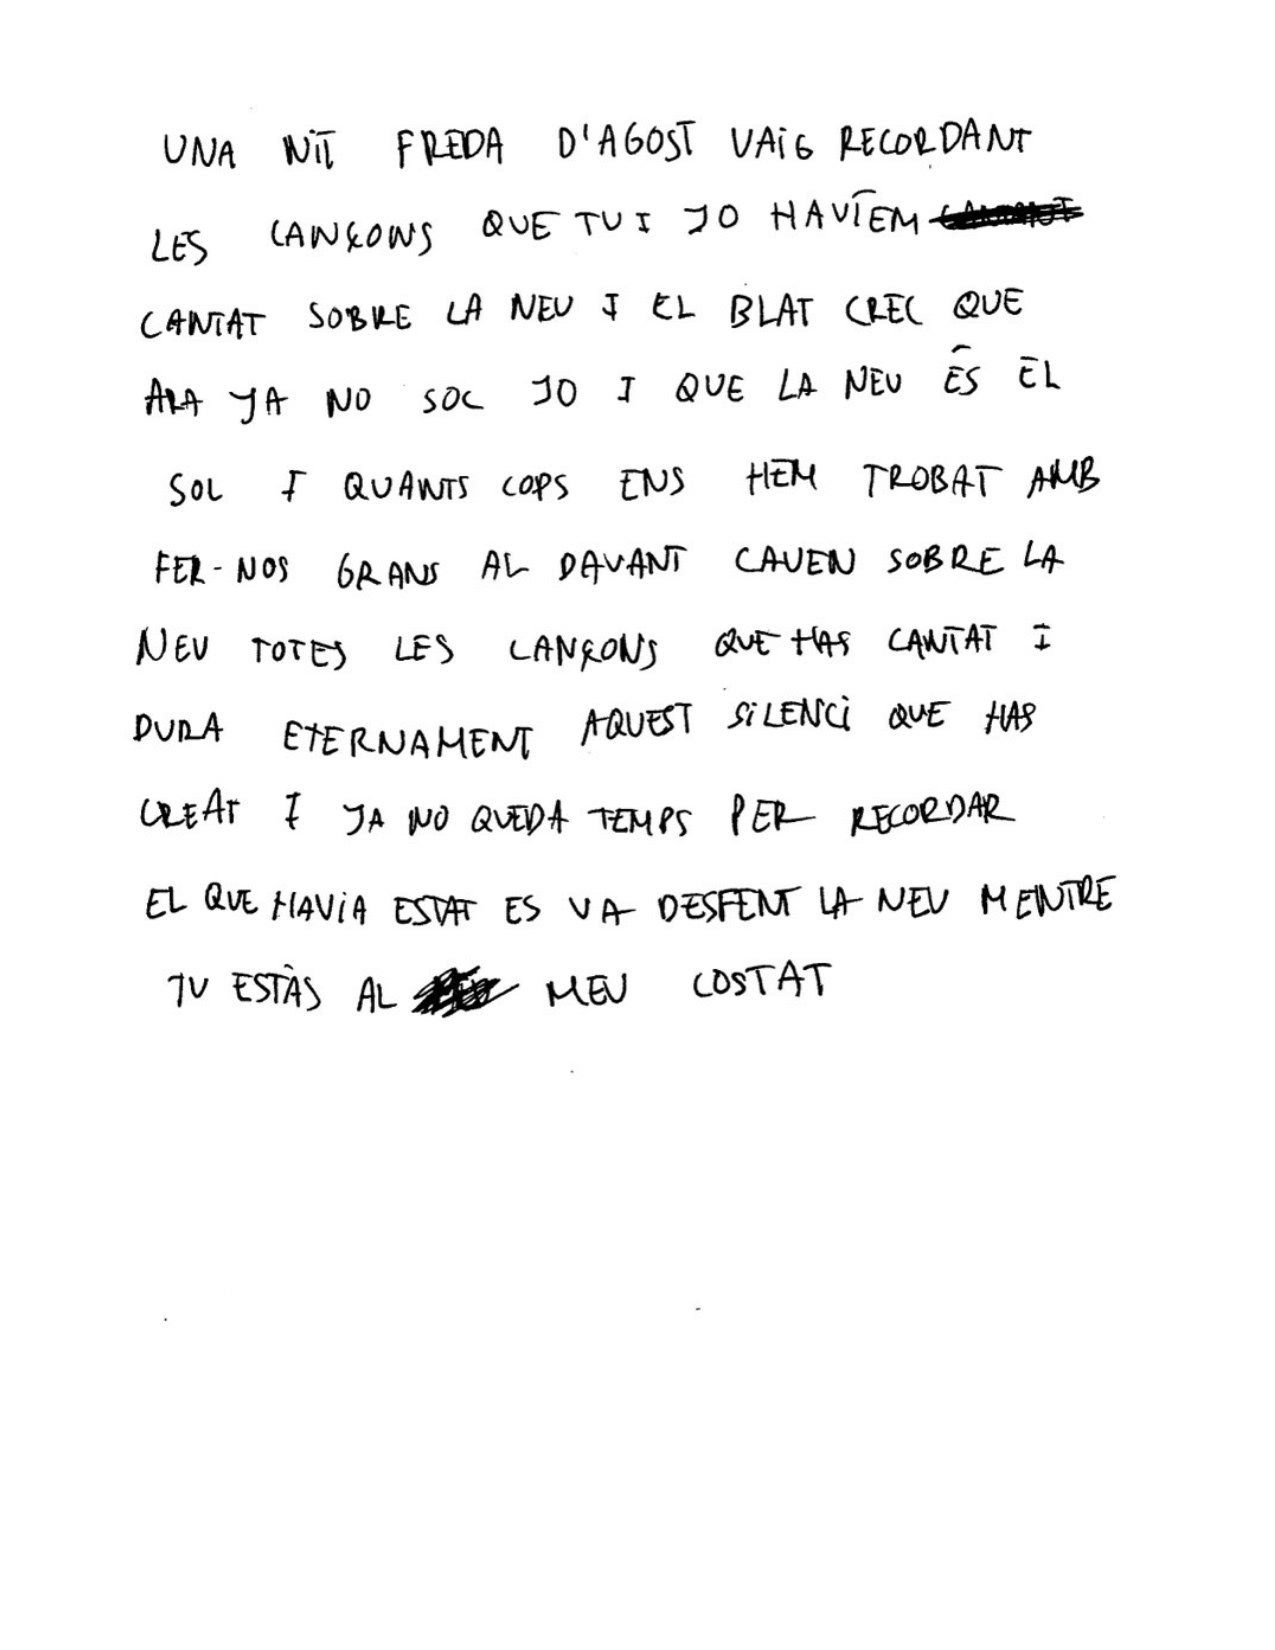 UNA NIT FREDA D'AGOST VAIG RECORDANT
LES CANÇONS QUE TU I JO HAVÍEM
CANTAT SOBRE LA NEU I EL BLAT CREC QUE
ARA JA NO SOC JO I QUE LA NEU ÉS EL
SOL I QUANTS COPS ENS HEM TROBAT AMB
FER-NOS GRANS AL DAVANT CAUEN SOBRE LA
NEU TOTES LES CANÇONS QUE HAS CANTAT I
DURA ETERNAMENT AQUEST SILENCI QUE HAS
CREAT I JA NO QUEDA TEMPS PER RECORDAR
EL QUE HAVIA ESTAT ES VA DESFENT LA NEU MENTRE
TU ESTÀS AL MEU COSTAT